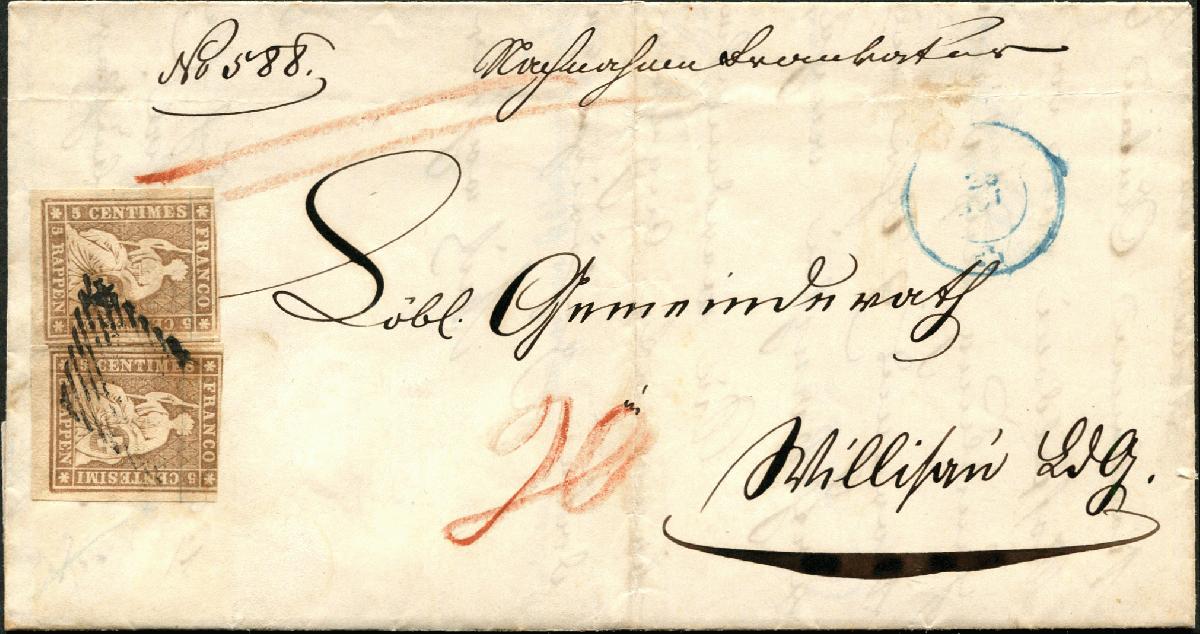 No 588.
Nachnahme
5 CENTIMES
FRANCO
5 RAPPEN
5 CENTIMES
FRANCO
RAPPEN
5 CENTESIMI
Löbl. Gemeinderath
in
20
Willisau Ldg.